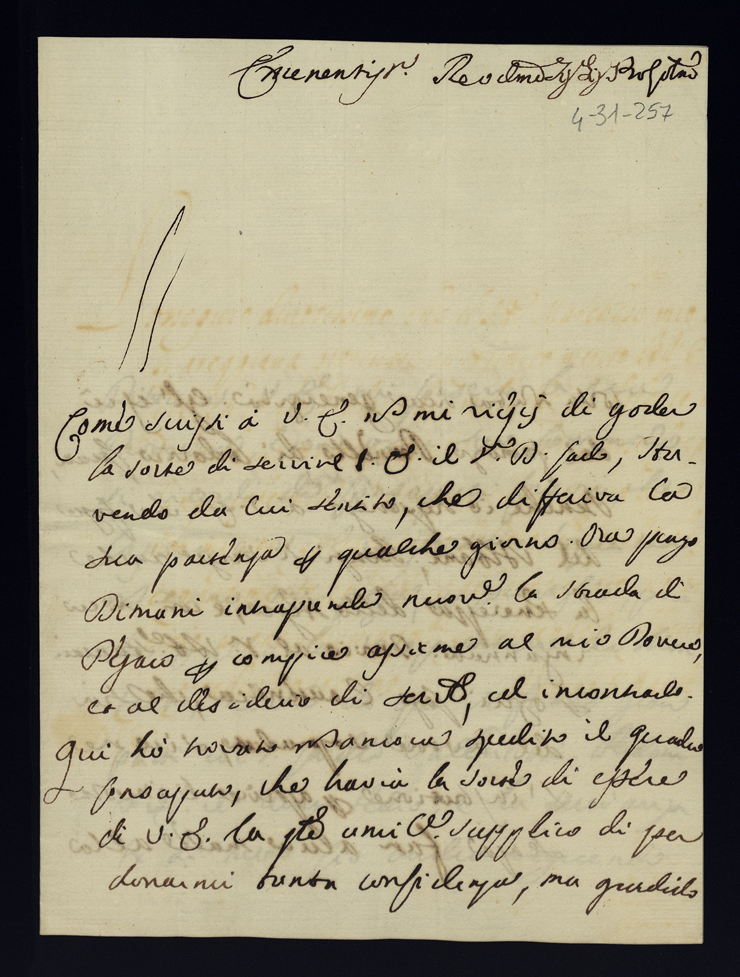 Eminentiss.º Reverdmo
4-31-257
Come scrissi à V. E. nõ mi riescij di goder
la sorte di servire S. E. il Sr. D. havendo
vendo da Lui sentito, che differiva la
sua partenza qualche giorno. Ora penso
Dimani intraprender nuov.e la strada di
Pesaro compire assieme al mio Dovere,
ed al desiderio di ed incontrarlo.
Qui hò trovato nõ ancora spedito il quadro
che havrà la sorte di essere
di V. E. la umil.e supplico di per
donarmi tanta confidenza, ma gradirlo